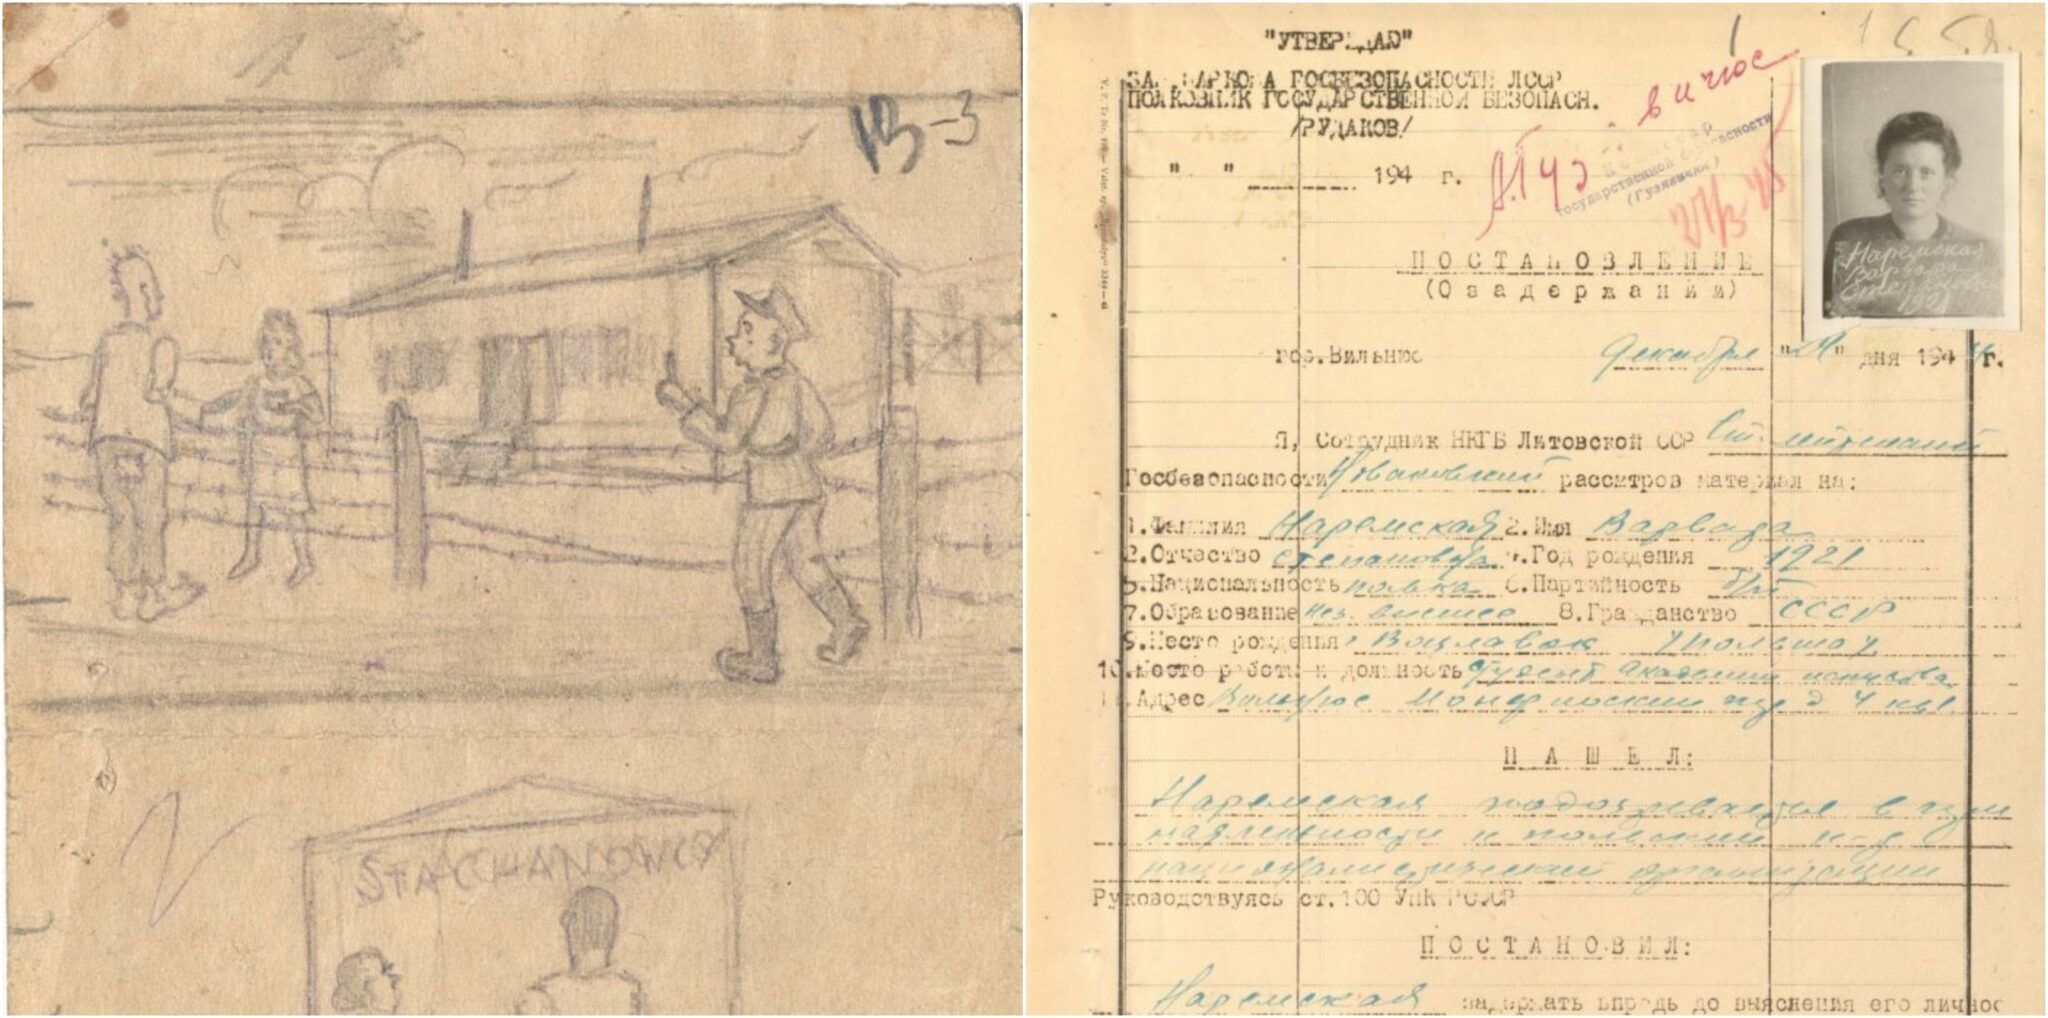 В-3
STACHANOWCY
"УТВЕРЖДАЮ"
ЗАМ. НАРКОМА ГОСБЕЗОПАСНОСТИ ЛССР
ПОЛКОВНИК ГОСУДАРСТВЕННОЙ БЕЗОПАСН.
/РУДАКОВ/
" " 194 г.
Комиссар
государственной безопасности
(Гузявичюс)
А. Гузявичюс
Наремская
Варвара
Степановна
1921
ПОСТАНОВЛЕНИЕ
(О задержании)
гор.Вильнюс декабря "24" дня 1944 г.
Я, Сотрудник НКГБ Литовской ССР Ст. лейтенант
Госбезопасности рассмтров материал на:
1.Фамилия Наремская 2.Имя Варвара
2.Отчество Степановна 4.Год рождения 1921
5.Национальность полька 6.Партийность б/п
7.Образование нез. высшее 8.Гражданство СССР
9.Место рождения Влоцлавек (Польша)
10.Место работы и должность студент Академии искусства
11.Адрес Вильнюс пер д 4 кв 1
НАШЕЛ:
Наремская подозревается в при
надлежности к польский к-р
националистический организации
Руководствуясь ст.100 УПК РСФСР
ПОСТАНОВИЛ:
Наремская задержать впредь до выяснения его личнос